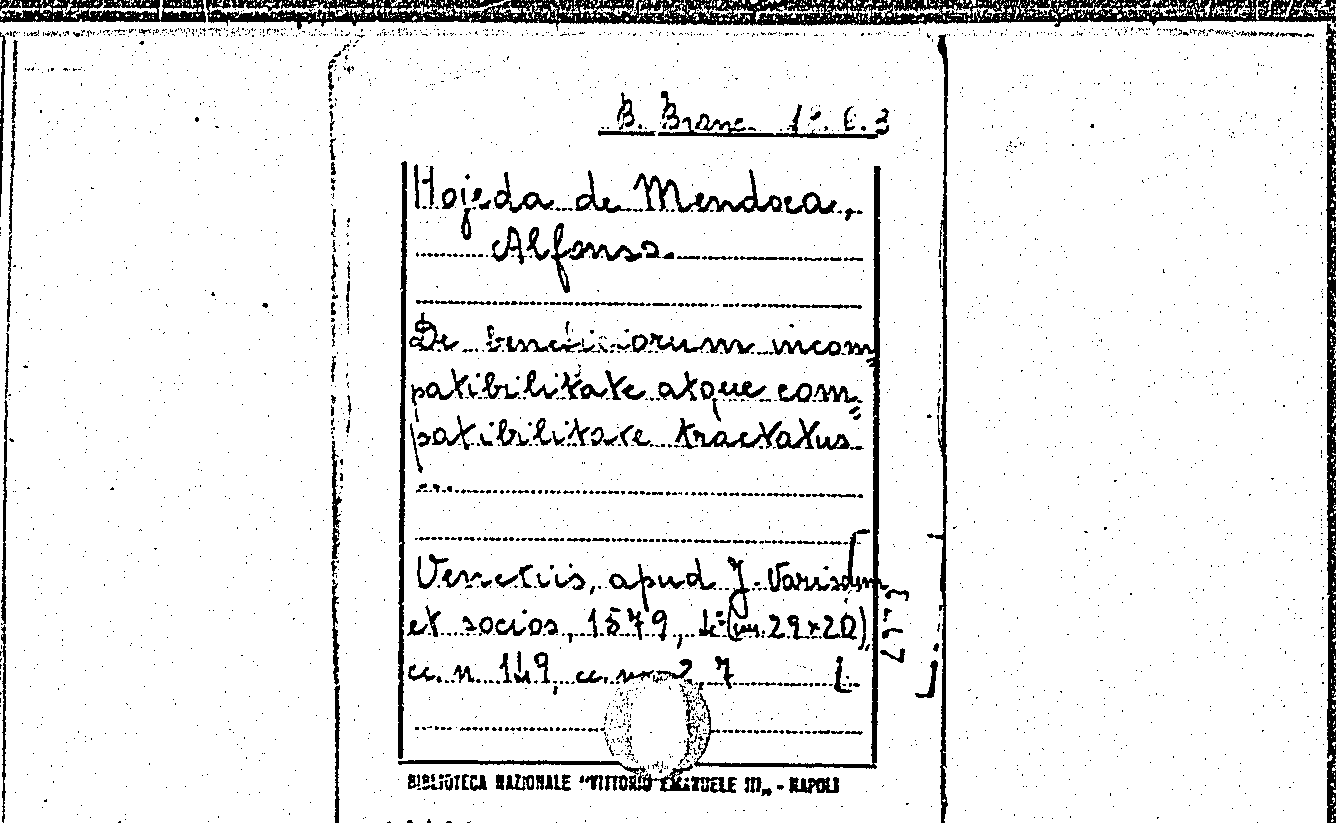 B. Branc. 1
Hojeda de Mendoca,
Alfonso.
De beneficiorum incom=
patibilitate atque com=
patibilitate tractatus
...
Venetiis, apud J. Variscum
et socios, 1579, 4° (mm. 29×20)
cc. n. 149, cc. 7 [
]
BIBLIOTECA NAZIONALE "VITTORIO EMANUELE III„ - NAPOLI